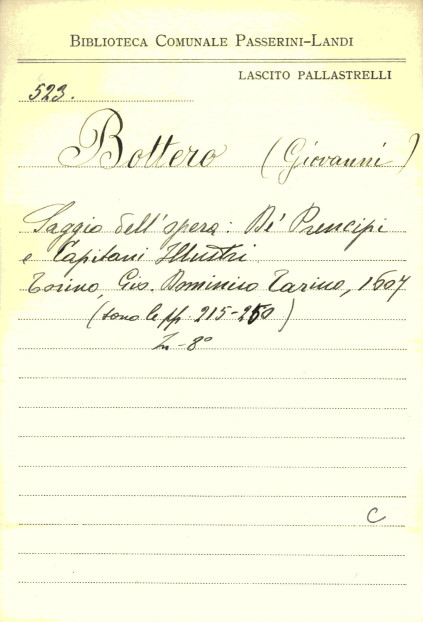 BIBLIOTECA COMUNALE PASSERINI-LANDI
LASCITO PALLASTRELLI
523.
Bottero (Giovanni)
Saggio dell'opera: De' Prencipi
e Capitani Illustri
Torino, Gio. Dominico Tarino, 1607
(sono le pp. 215-250)
In-8°
C